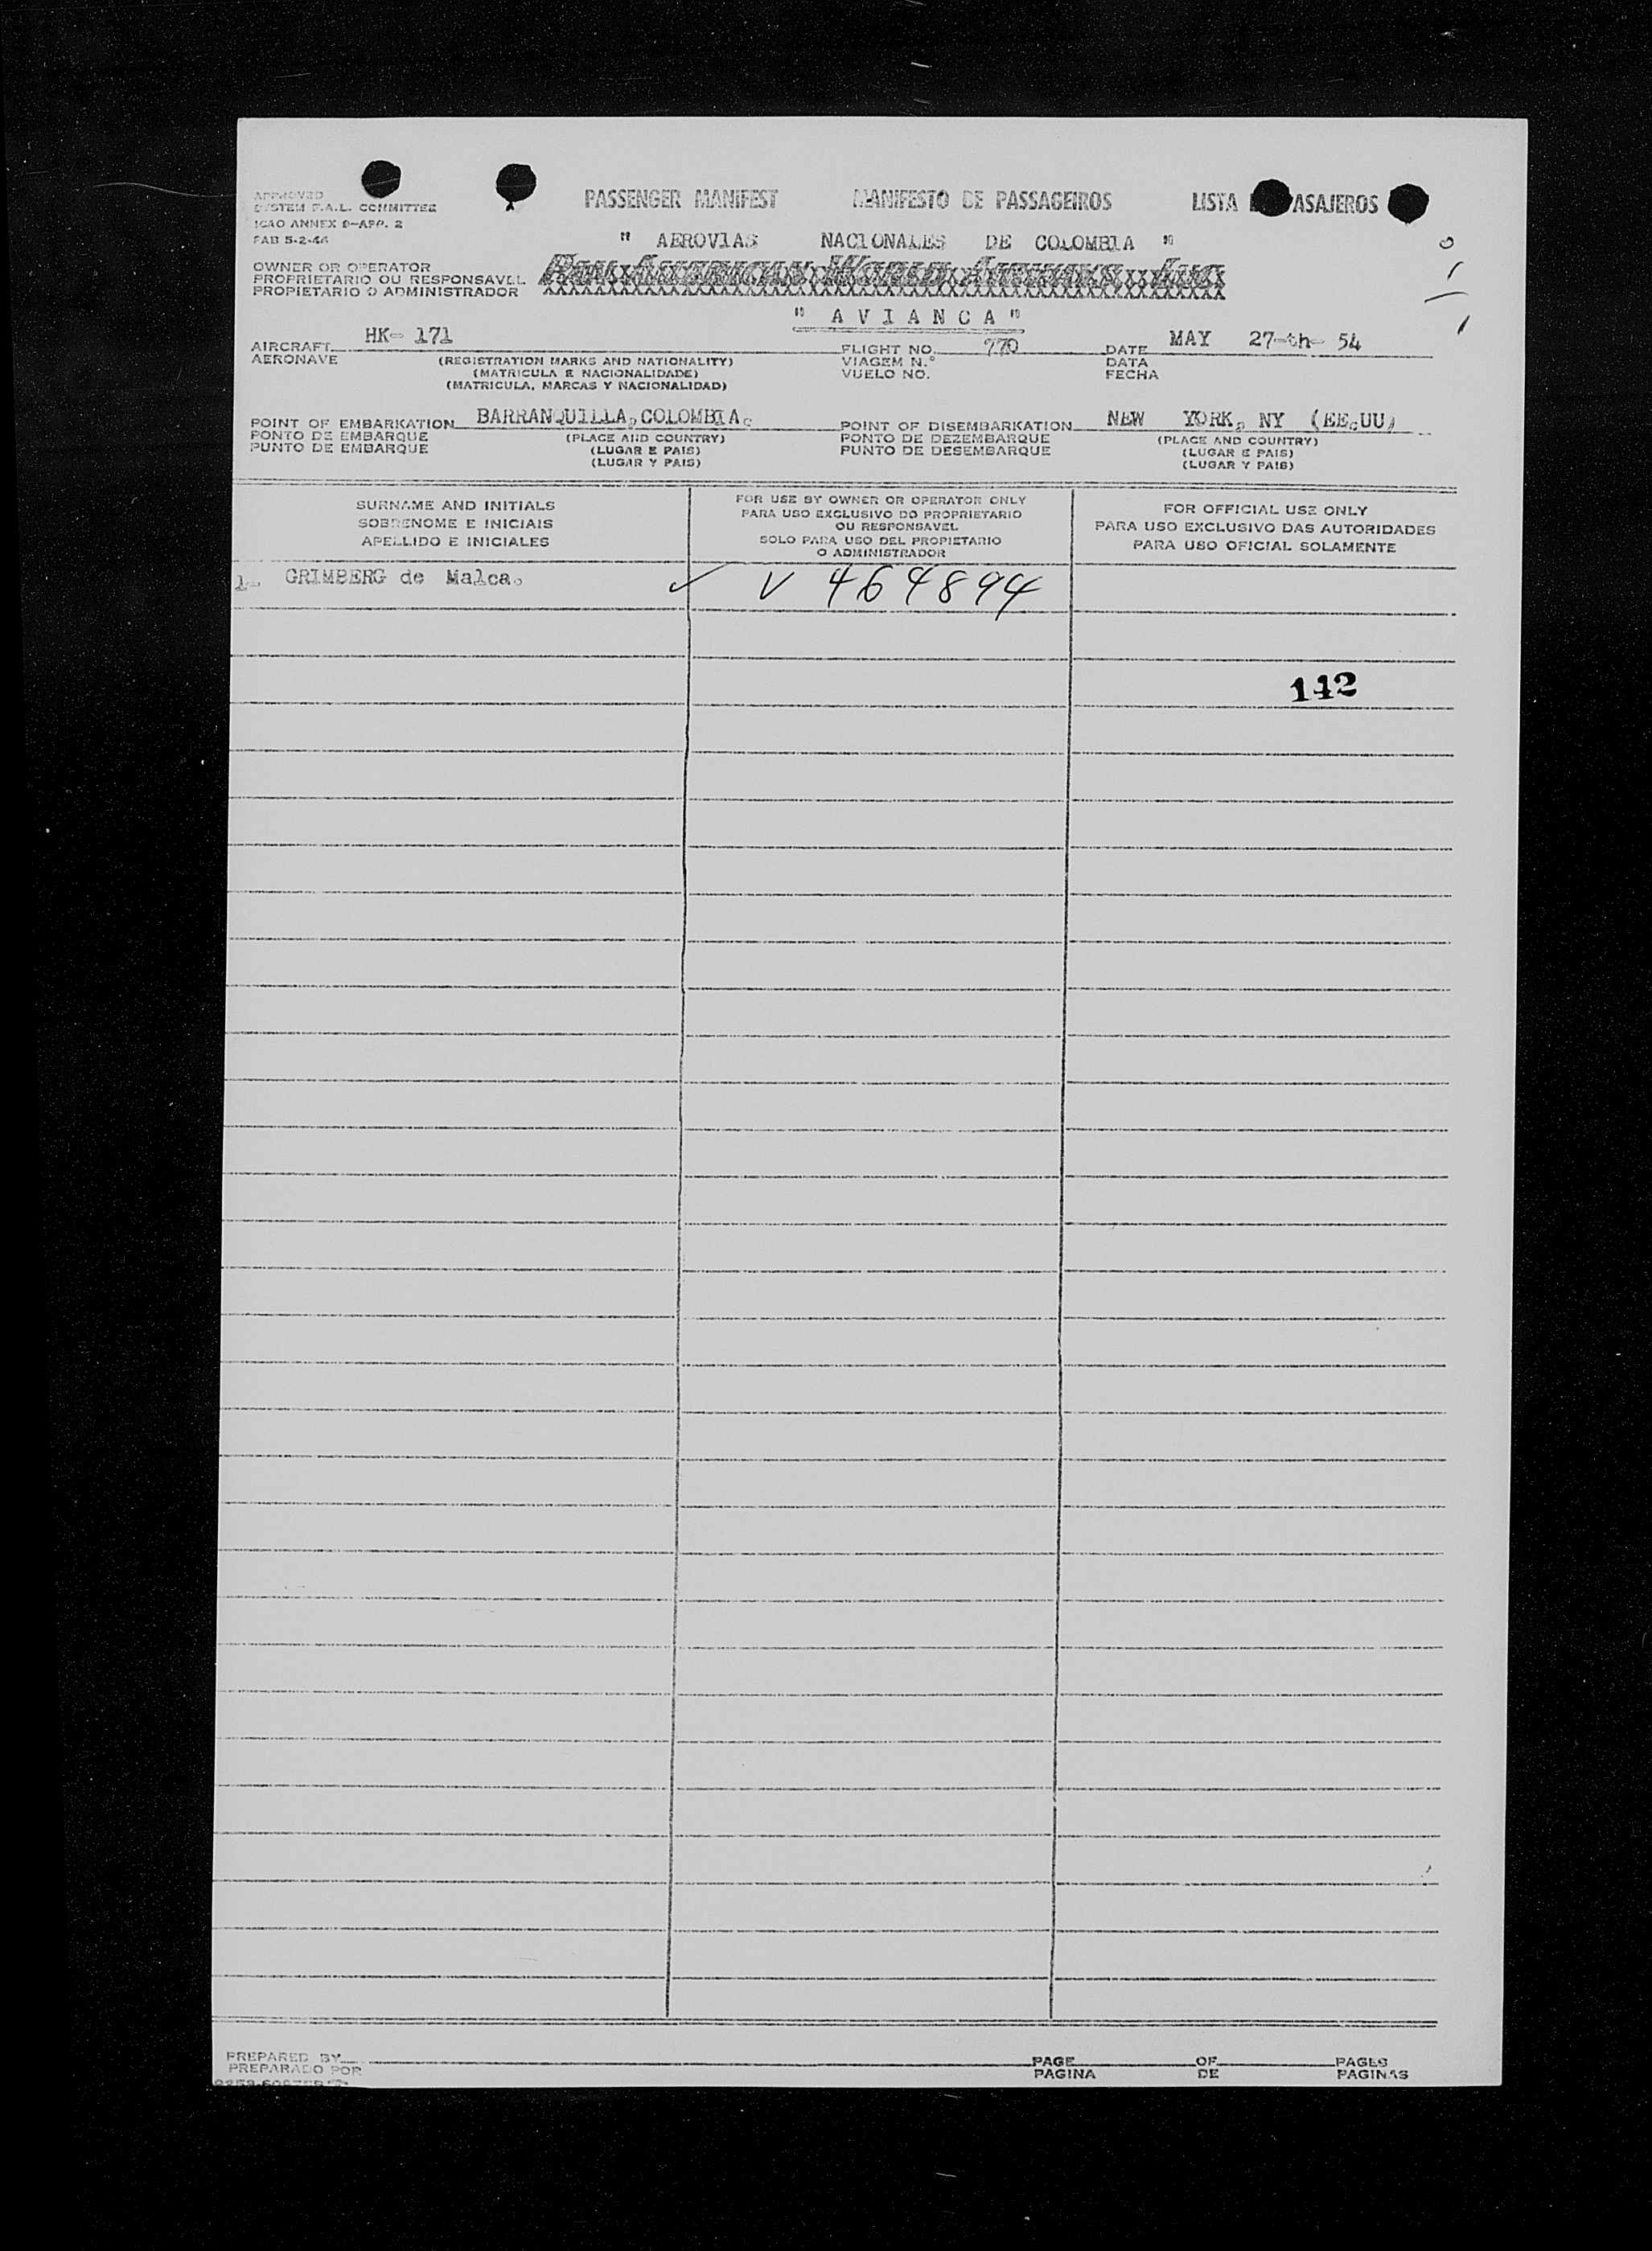 PASSENGER MANIFEST MANIFESTO DE PASSAGEIROS LISTA ASAJEROS
APPROVED
SYSTEM F.A.L. COMMITTEE
ICAO ANNEX 9-APP. 2
FAB 5-2-46
" AEROVIAS NACIONALES DE COLOMBIA "
OWNER OR OPERATOR
PROPRIETARIO OU RESPONSAVEL
PROPIETARIO O ADMINISTRADOR
PAN AMERICAN WORLD AIRWAYS, INC
" A V I A N C A "
AIRCRAFT HK- 171
AERONAVE
(REGISTRATION MARKS AND NATIONALITY)
(MATRICULA E NACIONALIDADE)
(MATRICULA, MARCAS Y NACIONALIDAD)
FLIGHT NO. 770
VIAGEM N.º
VUELO NO.
DATE MAY 27-th- 54
DATA
FECHA
POINT OF EMBARKATION BARRANQUILLA, COLOMBIA.
PONTO DE EMBARQUE
PUNTO DE EMBARQUE
(PLACE AND COUNTRY)
(LUGAR E PAIS)
(LUGAR Y PAIS)
POINT OF DISEMBARKATION NEW YORK, NY (EE.UU)
PONTO DE DEZEMBARQUE
PUNTO DE DESEMBARQUE
(PLACE AND COUNTRY)
(LUGAR E PAIS)
(LUGAR Y PAIS)
SURNAME AND INITIALS
SOBRENOME E INICIAIS
APELLIDO E INICIALES
FOR USE BY OWNER OR OPERATOR ONLY
PARA USO EXCLUSIVO DO PROPRIETARIO
OU RESPONSAVEL
SOLO PARA USO DEL PROPIETARIO
O ADMINISTRADOR
FOR OFFICIAL USE ONLY
PARA USO EXCLUSIVO DAS AUTORIDADES
PARA USO OFICIAL SOLAMENTE
1- GRIMBERG de Malca. ✓ V 464894
142
PREPARED BY
PREPARADO POR
PAGE OF PAGES
PAGINA DE PAGINAS